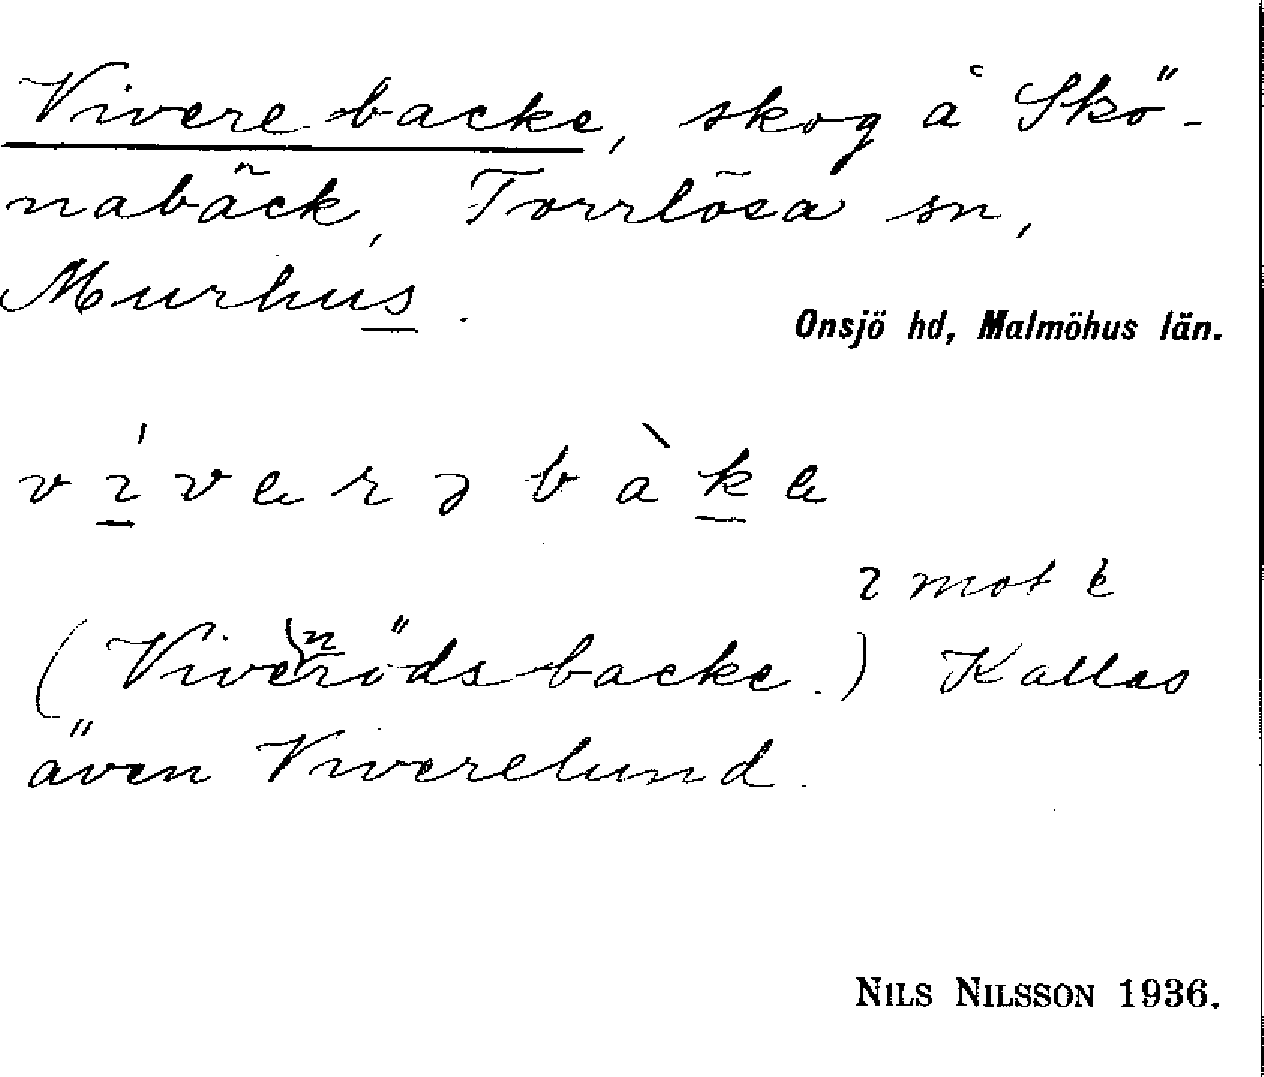 Viverebacke, skog å Skö-
nabäck, Torrlösa sn,
Murhus.
Onsjö hd, Malmöhus län.
(Viverödsbacke.) Kallas
även Viverelund.
NILS NILSSON 1936.